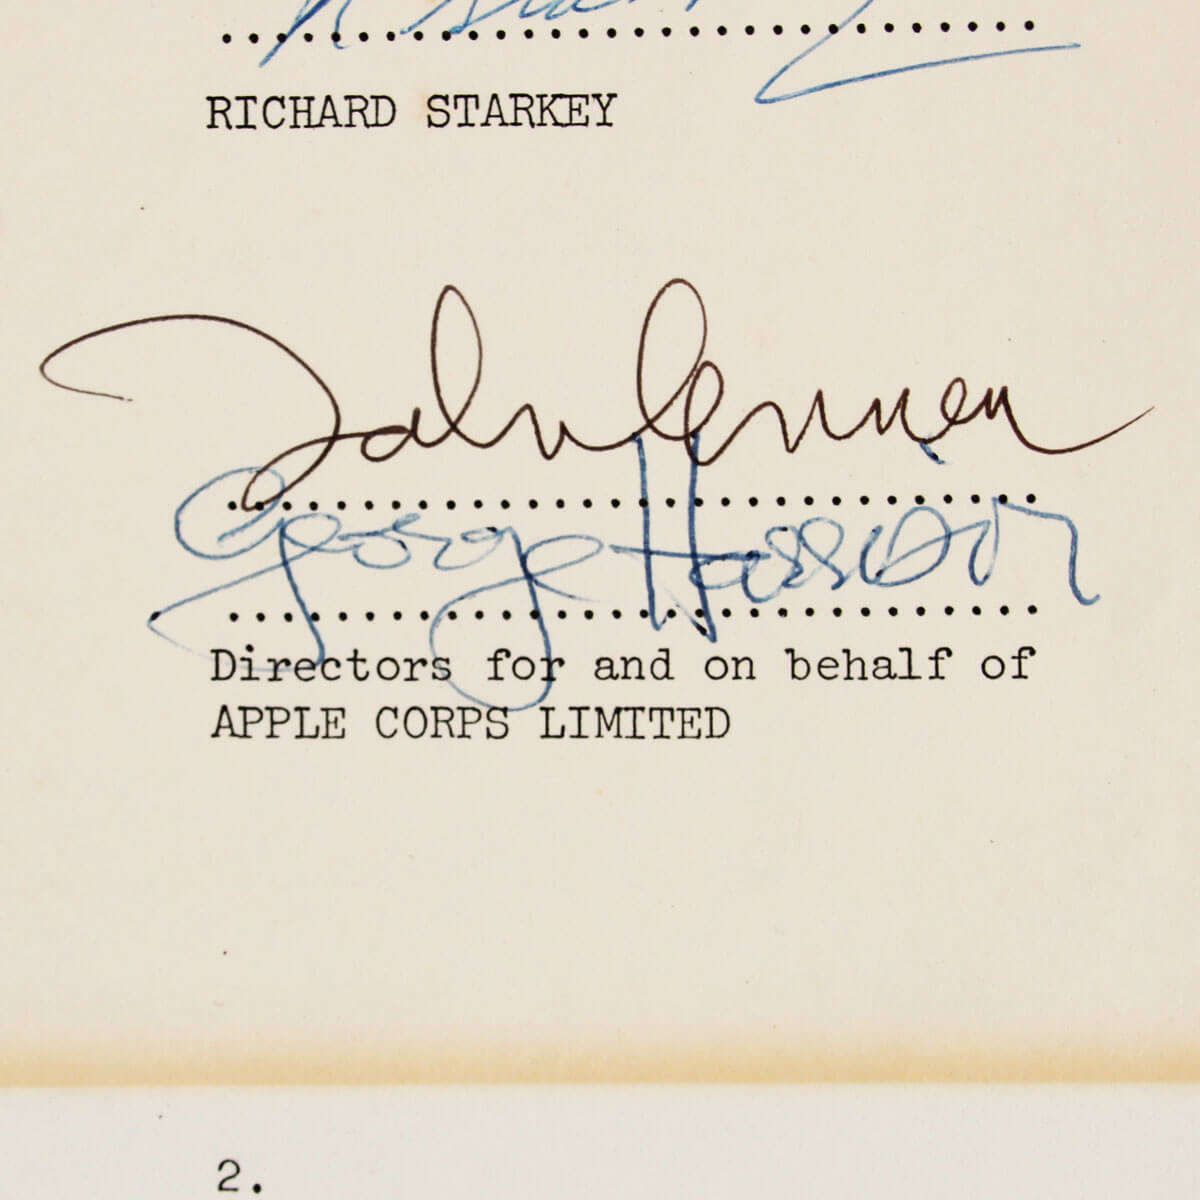 R Starkey
RICHARD STARKEY
John Lennon
George Harrison
Directors for and on behalf of
APPLE CORPS LIMITED
2.